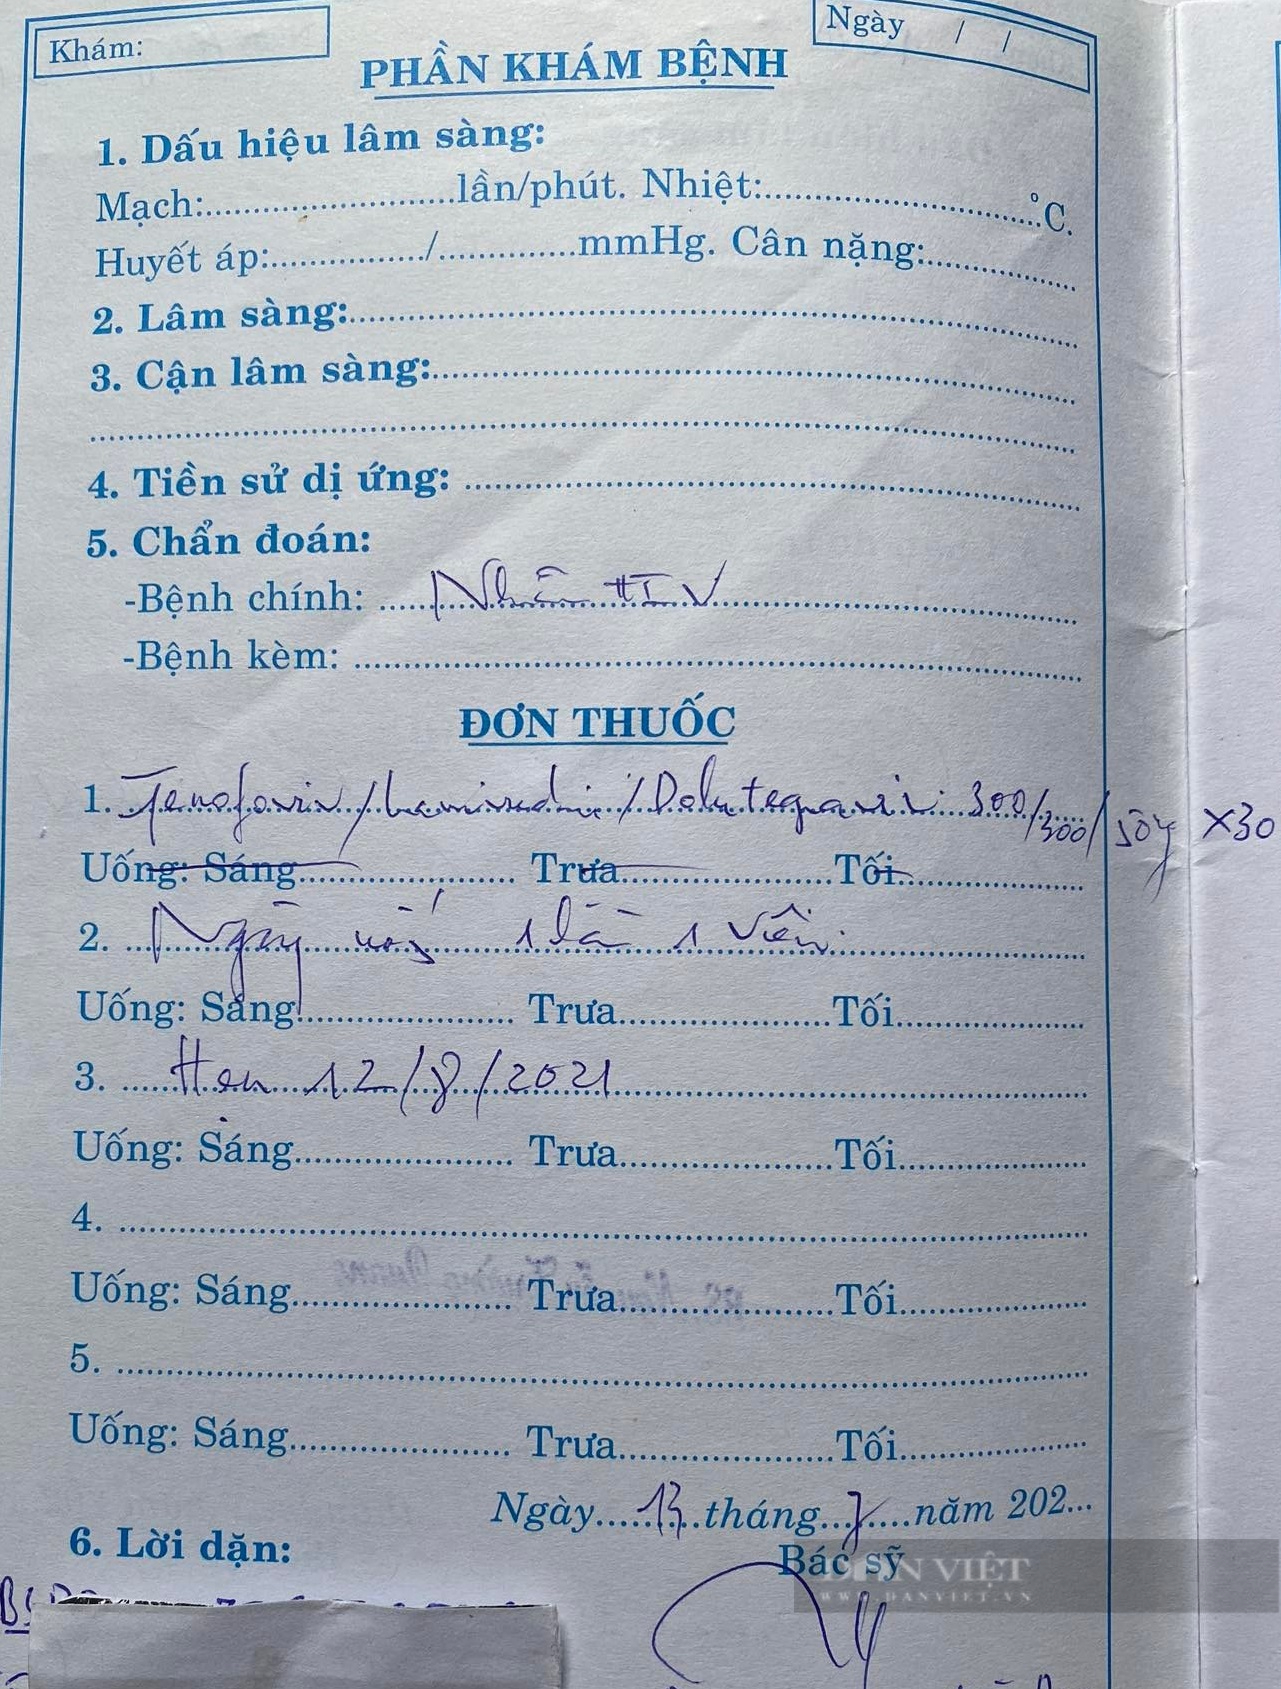 Khám:
Ngày / /
PHẦN KHÁM BỆNH
1. Dấu hiệu lâm sàng:
Mạch:..........................lần/phút. Nhiệt:..............................°C.
Huyết áp:................/..............mmHg. Cân nặng:................
2. Lâm sàng:..............................
3. Cận lâm sàng:..............................
4. Tiền sử dị ứng: ..............................
5. Chẩn đoán:
-Bệnh chính: Nhiễm HIV
-Bệnh kèm: ..............................
ĐƠN THUỐC
1. Tenofovir/Lamivudin/Dolutegravir 300/300/50 x30
Uống: Sáng...................... Trưa......................Tối....................
2. Ngày uống 1 lần 1 viên
Uống: Sáng...................... Trưa......................Tối....................
3. Hẹn 12/8/2021
Uống: Sáng...................... Trưa......................Tối....................
4. ..............................
Uống: Sáng...................... Trưa......................Tối....................
5. ..............................
Uống: Sáng...................... Trưa......................Tối....................
Ngày 13 tháng 7 năm 202...
6. Lời dặn:
Bác sỹ
DÂN VIỆT
WWW.DANVIET.VN